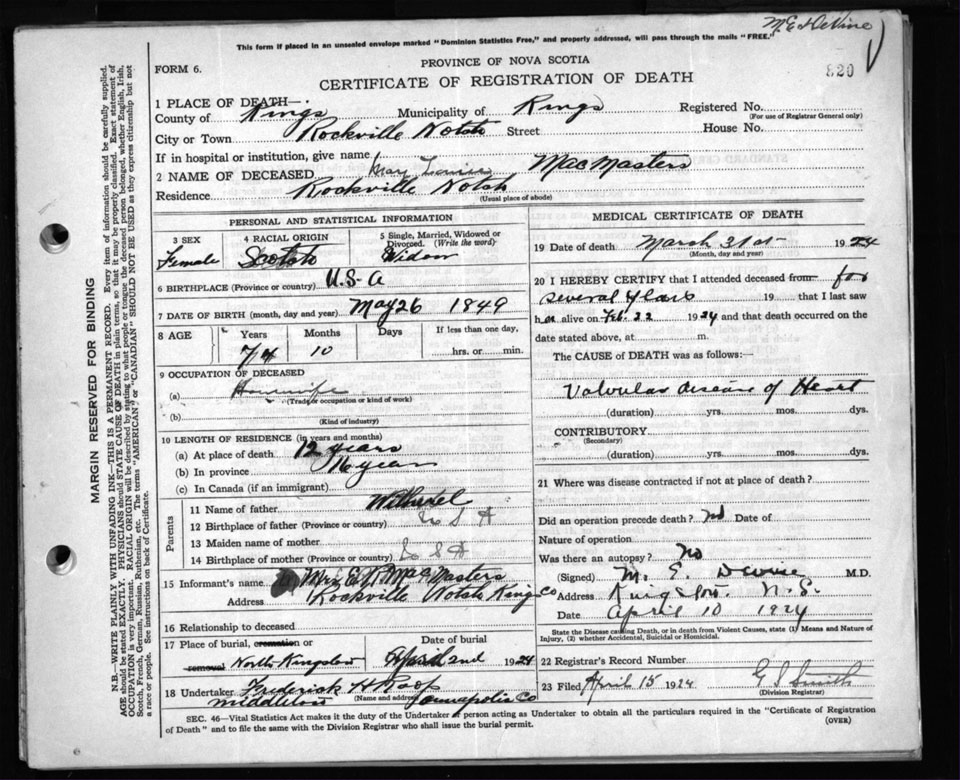 This form if placed in an unsealed envelope marked "Dominion Statistics Free," and properly addressed, will pass through the mails "FREE."
PROVINCE OF NOVA SCOTIA
FORM 6.
CERTIFICATE OF REGISTRATION OF DEATH
820
1 PLACE OF DEATH—
County of Kings Municipality of Kings Registered No.
(For use of Registrar General only)
City or Town Rockville Notch Street House No.
If in hospital or institution, give name
2 NAME OF DECEASED MacMasters
Residence Rockville Notch
(Usual place of abode)
PERSONAL AND STATISTICAL INFORMATION
3 SEX Female
4 RACIAL ORIGIN Scotch
5 Single, Married, Widowed or Divorced. (Write the word) Widow
6 BIRTHPLACE (Province or country) U.S.A
7 DATE OF BIRTH (month, day and year) May 26 1849
8 AGE Years Months Days If less than one day,
74 10 hrs. or min.
9 OCCUPATION OF DECEASED
(a) Housewife
(Trade or occupation or kind of work)
(b)
(Kind of industry)
10 LENGTH OF RESIDENCE (in years and months)
(a) At place of death 12 years
(b) In province years
(c) In Canada (if an immigrant)
Parents
11 Name of father
12 Birthplace of father (Province or country) U S A
13 Maiden name of mother
14 Birthplace of mother (Province or country) U S A
15 Informant's name Mrs E. MacMasters
Address Rockville Notch Kings Co
16 Relationship to deceased
17 Place of burial, cremation or removal North Kingston
Date of burial April 2nd 1924
18 Undertaker Frederick H Roop
(Name and address)
Middleton Annapolis Co
MEDICAL CERTIFICATE OF DEATH
19 Date of death March 31st 1924
(Month, day and year)
20 I HEREBY CERTIFY that I attended deceased from for
several years 19 that I last saw
her alive on Feb. 22 1924 and that death occurred on the
date stated above, at m.
The CAUSE of DEATH was as follows:—
Valvular disease of Heart
(duration) yrs. mos. dys.
CONTRIBUTORY
(Secondary)
(duration) yrs. mos. dys.
21 Where was disease contracted if not at place of death?
Did an operation precede death? no Date of
Nature of operation
Was there an autopsy? no
(Signed) M. E. M.D.
Address Kingston. N.S.
Date April 10 1924
State the Disease causing Death, or in death from Violent Causes, state (1) Means and Nature of Injury, (2) whether Accidental, Suicidal or Homicidal.
22 Registrar's Record Number
23 Filed April 15 1924 Smith
(Division Registrar)
SEC. 46—Vital Statistics Act makes it the duty of the Undertaker or person acting as Undertaker to obtain all the particulars required in the "Certificate of Registration
of Death" and to file the same with the Division Registrar who shall issue the burial permit. (OVER)
MARGIN RESERVED FOR BINDING
N.B.—WRITE PLAINLY WITH UNFADING INK—THIS IS A PERMANENT RECORD. Every item of information should be carefully supplied.
AGE should be stated EXACTLY. PHYSICIANS should STATE CAUSE OF DEATH in plain terms, so that it may be properly classified. Exact statement of
OCCUPATION is very important. RACIAL ORIGIN will be described by stating to what people or tongue the deceased person belonged, whether English, Irish,
Scotch, French, German, Russian, Ruthenian, etc. The terms "AMERICAN" or "CANADIAN" SHOULD NOT BE USED as they express citizenship but not
a race or people. See instructions on back of Certificate.